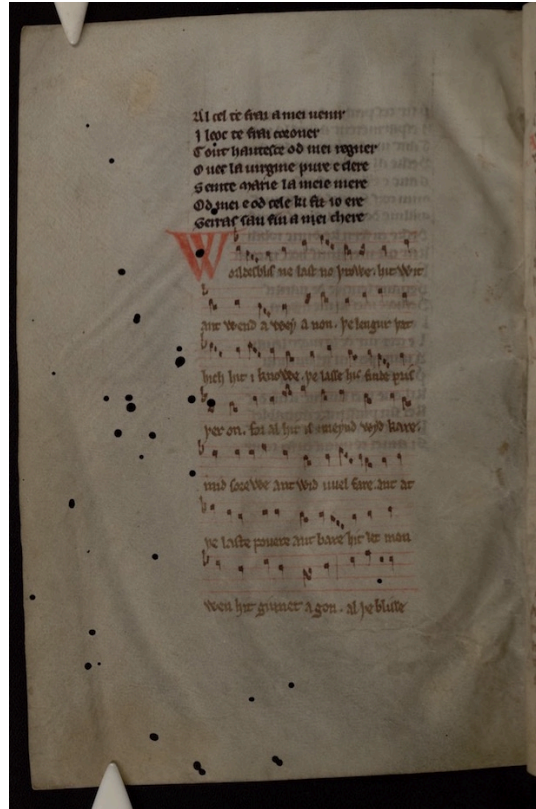 Al cel te frai a mei uenir
I leoc te frai coroner
hautesce od mei regner
O uec la uirgine pure e clere
Seinte marie la meie mere
Od mei e od cele ki
Serras sau fin a mei chere
Worldes blis ne last no þrowe. hit wit
ant wend a wey a non. þe lengur þet
hich hit i knowe. þe lasse hic finde pris
þer on. for al hit is imeynd wyd kare.
mid sorewe ant wid uuel fare. ant at
þe laste pouere ant bare hit let mon
wen hit ginnet agon. al þe blisse